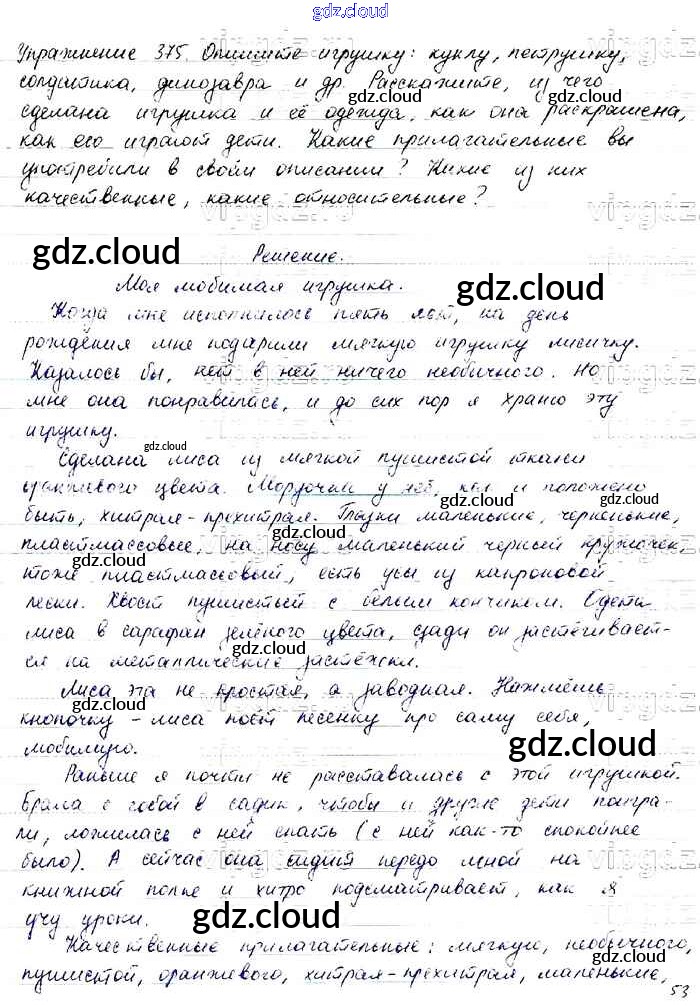 gdz.cloud
Упражнение 375. Опишите игрушку: куклу, петрушку,
солдатика, динозавра и др. Расскажите, из чего
gdz.cloud gdz.cloud
сделана игрушка и её одежда, как она раскрашена,
как ею играют дети. Какие прилагательные вы
употребили в своём описании? Какие из них
качественные, какие относительные?
gdz.cloud
Решение.
Моя любимая игрушка.
gdz.cloud
Когда мне исполнилось пять лет, на день
рождения мне подарили мягкую игрушку лисичку.
Казалось бы, нет в ней ничего необычного. Но
мне она понравилась, и до сих пор я храню эту
игрушку.
gdz.cloud
Сделана лиса из мягкой пушистой ткани
gdz.cloud
оранжевого цвета. Мордочка у неё, как и положено
gdz.cloud gdz.cloud
быть, хитрая-прехитрая. Глазки маленькие, чёрненькие,
пластмассовые, на носу маленький чёрный кружочек,
gdz.cloud gdz.cloud
тоже пластмассовый, есть усы из капроновой
лески. Хвост пушистый с белым кончиком. Одета
gdz.cloud
лиса в сарафан зелёного цвета, сзади он застёгивает-
gdz.cloud
ся на металлические застёжки.
Лиса эта не простая, а заводная. Нажмёшь
gdz.cloud
кнопочку – лиса поёт песенку про саму себя,
любимую.
gdz.cloud
Раньше я почти не расставалась с этой игрушкой.
Брала с собой в садик, чтобы и другие дети поигра-
gdz.cloud
ли, ложилась с ней спать (с ней как-то спокойнее
было). А сейчас она сидит передо мной на
gdz.cloud
книжной полке и хитро подсматривает, как я
учу уроки.
gdz.cloud
Качественные прилагательные: мягкую, необычного,
пушистой, оранжевого, хитрая-прехитрая, маленькие,
53